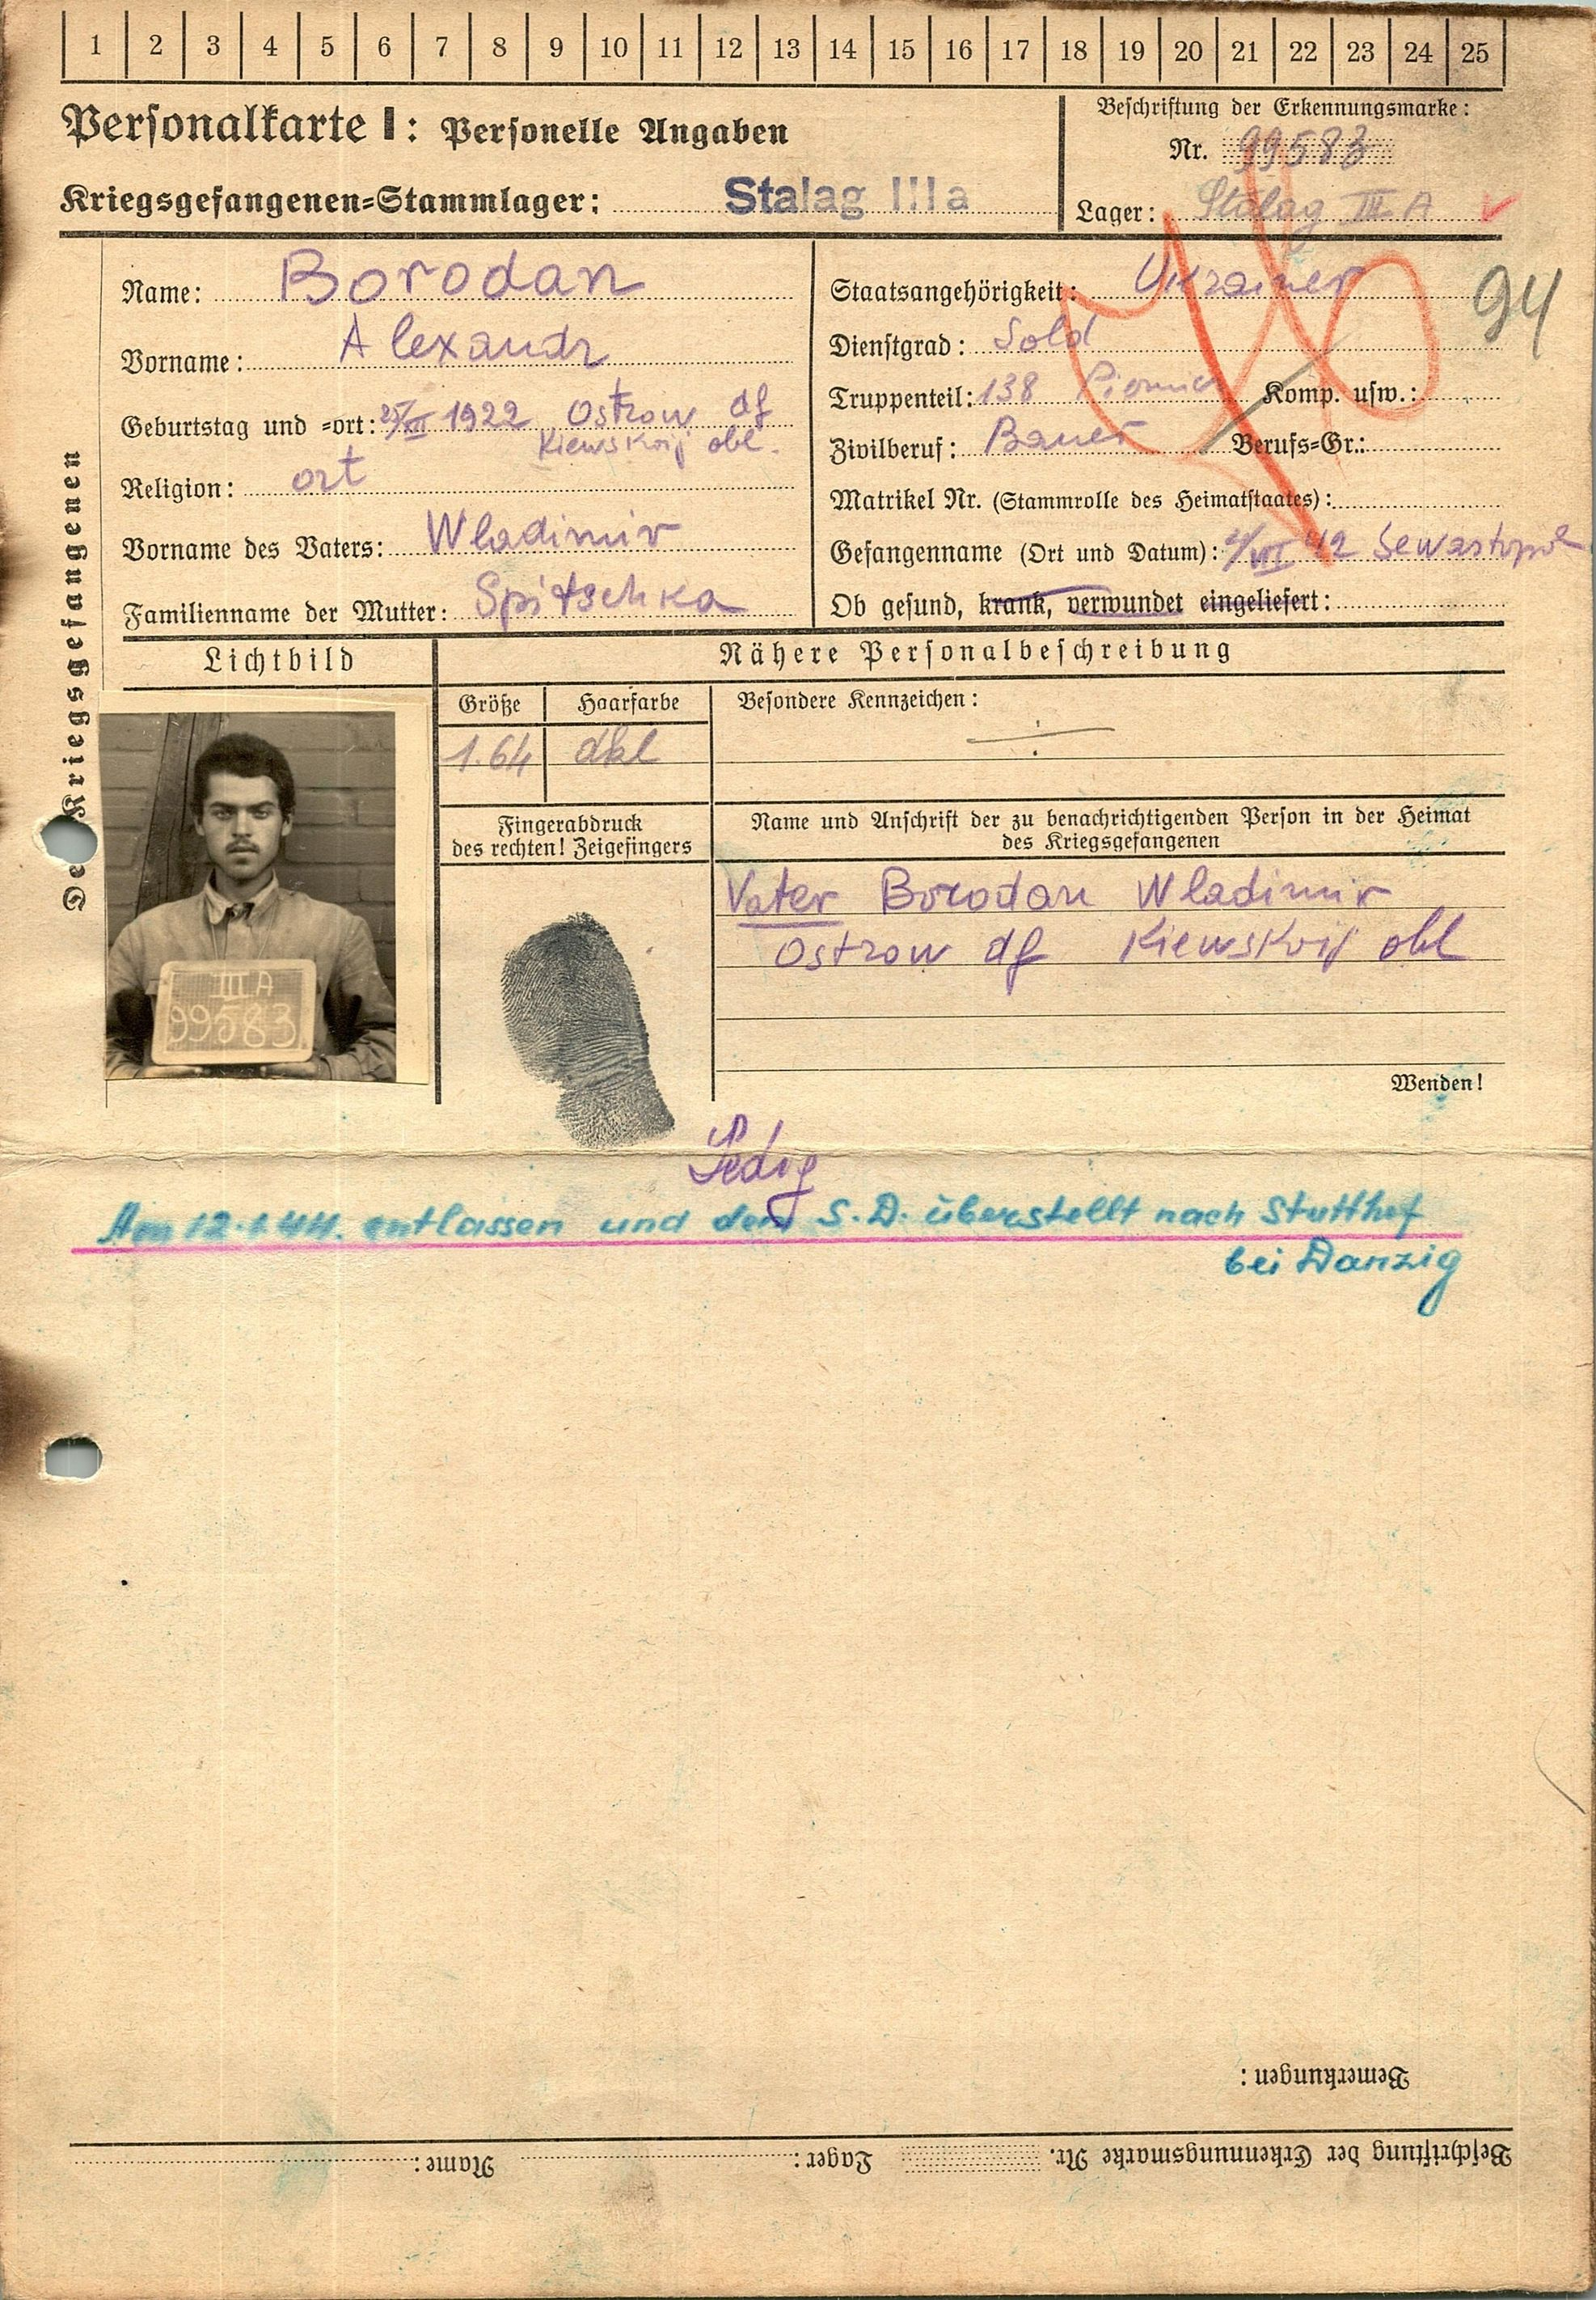 1 2 3 4 5 6 7 8 9 10 11 12 13 14 15 16 17 18 19 20 21 22 23 24 25
Personalkarte I: Personelle Angaben
Kriegsgefangenen-Stammlager: Stalag IIIa
Beschriftung der Erkennungsmarke:
Nr. 99583
Lager: Stalag III A
Des Kriegsgefangenen
Name: Borodan
Vorname: Alexandr
Geburtstag und -ort: 25/XII 1922 Ostrow df
Kiewskoij obl.
Religion: ort
Vorname des Vaters: Wladimir
Familienname der Mutter: Spitschka
Staatsangehörigkeit: Ukrainer
94
Dienstgrad: Sold
Truppenteil: 138 Komp. usw.:
Zivilberuf: Bauer Berufs-Gr.:
Matrikel Nr. (Stammrolle des Heimatstaates):
Gefangenname (Ort und Datum): 42 Sewastopol
Ob gesund, krank, verwundet eingeliefert:
Lichtbild
Nähere Personalbeschreibung
Größe Haarfarbe Besondere Kennzeichen:
1.64 dkl
III A
99583
Fingerabdruck
des rechten! Zeigefingers
Name und Anschrift der zu benachrichtigenden Person in der Heimat
des Kriegsgefangenen
Vater Borodan Wladimir
Ostrow df Kiewskoij obl
Wenden!
Ledig
Am 12.1.44. entlassen und dem S.D. überstellt nach Stutthof
bei Danzig
Bemerkungen:
Beschriftung der Erkennungsmarke Nr. Lager: Name: